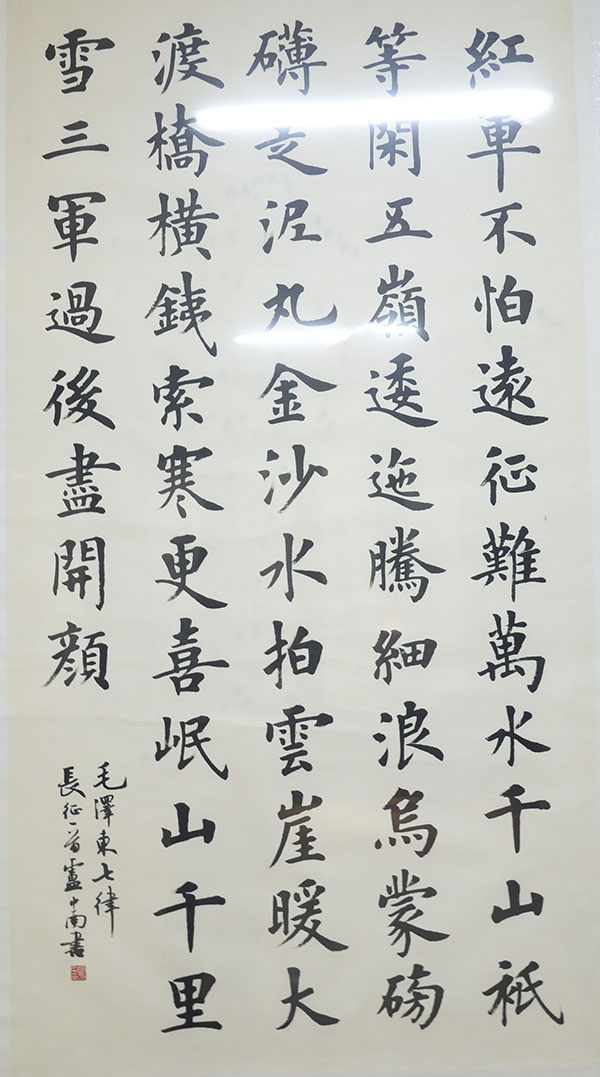 紅軍不怕遠征難萬水千山祇
等閑五嶺逶迤騰細浪烏蒙磅
礴走泥丸金沙水拍雲崖暖大
渡橋橫銕索寒更喜岷山千里
雪三軍過後盡開顏
毛澤東七律
長征一首盧中南書